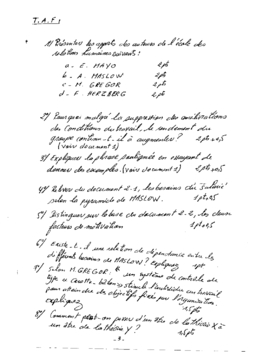 T.A.F:
1/ Présenter les apports des auteurs de l'école des
relations humaines suivants:
a - E. MAYO 2pts
b - A. MASLOW 2pts
c - M. GREGOR 2pts
d - F. HERZBERG 2pts
2/ Pourquoi malgré la suppression des améliorations
des conditions du travail, le rendement du
groupe continu-t-il à augmenter? 2pts
(voir document 1)
3/ Expliquer la phrase soulignée en essayant de
donner des exemples. (voir document 1)
4/ Relever du document 2-1, les besoins de
selon la pyramide de MASLOW.
5/ Distinguer sur la base du document 2-2, les deux
facteurs de motivation
6/ Existe-t-il une relation de dépendance entre les
différents besoins de MASLOW? Expliquez 1pt
7/ Selon M. GREGOR, un système de contrôle de
type stimule l'individu au travail
pour atteindre des objectifs fixés par l'organisation.
expliquez 1,5pts
8/ Comment peut-on passer d'un être de la théorie X à
un être de la théorie Y? 1,5pts